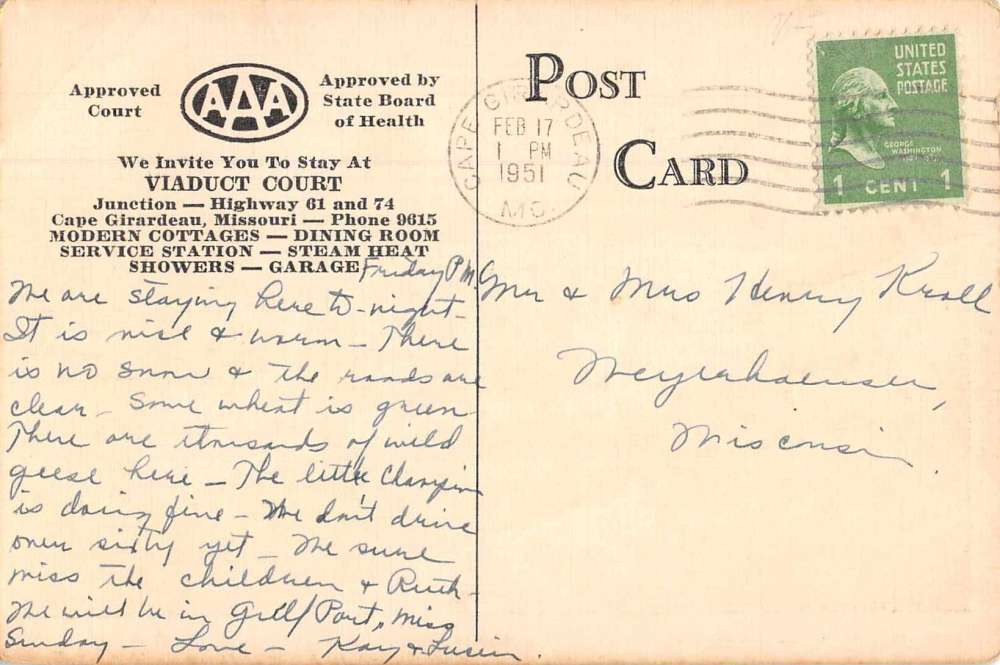 Approved Court
AAA
Approved by
State Board
of Health
We Invite You To Stay At
VIADUCT COURT
Junction — Highway 61 and 74
Cape Girardeau, Missouri — Phone 9615
MODERN COTTAGES — DINING ROOM
SERVICE STATION — STEAM HEAT
SHOWERS — GARAGE
Friday P.M.
We are staying here to-night-
It is nice & warm - There
is no snow & the roads are
clear - Some wheat is green
There are thousands of wild
geese here - The little Champion
is doing fine - We don't drive
over sixty yet - We sure
miss the children & Ruth-
We will be in Gulf Port, Miss
Sunday - Love - Kay &
POST
CARD
CAPE GIRARDEAU
FEB 17
1 PM
1951
MO.
UNITED
STATES
POSTAGE
GEORGE
WASHINGTON
1 CENT 1
Mr & Mrs Henry Kroll
Weyerhaeuser,
Wisconsin.